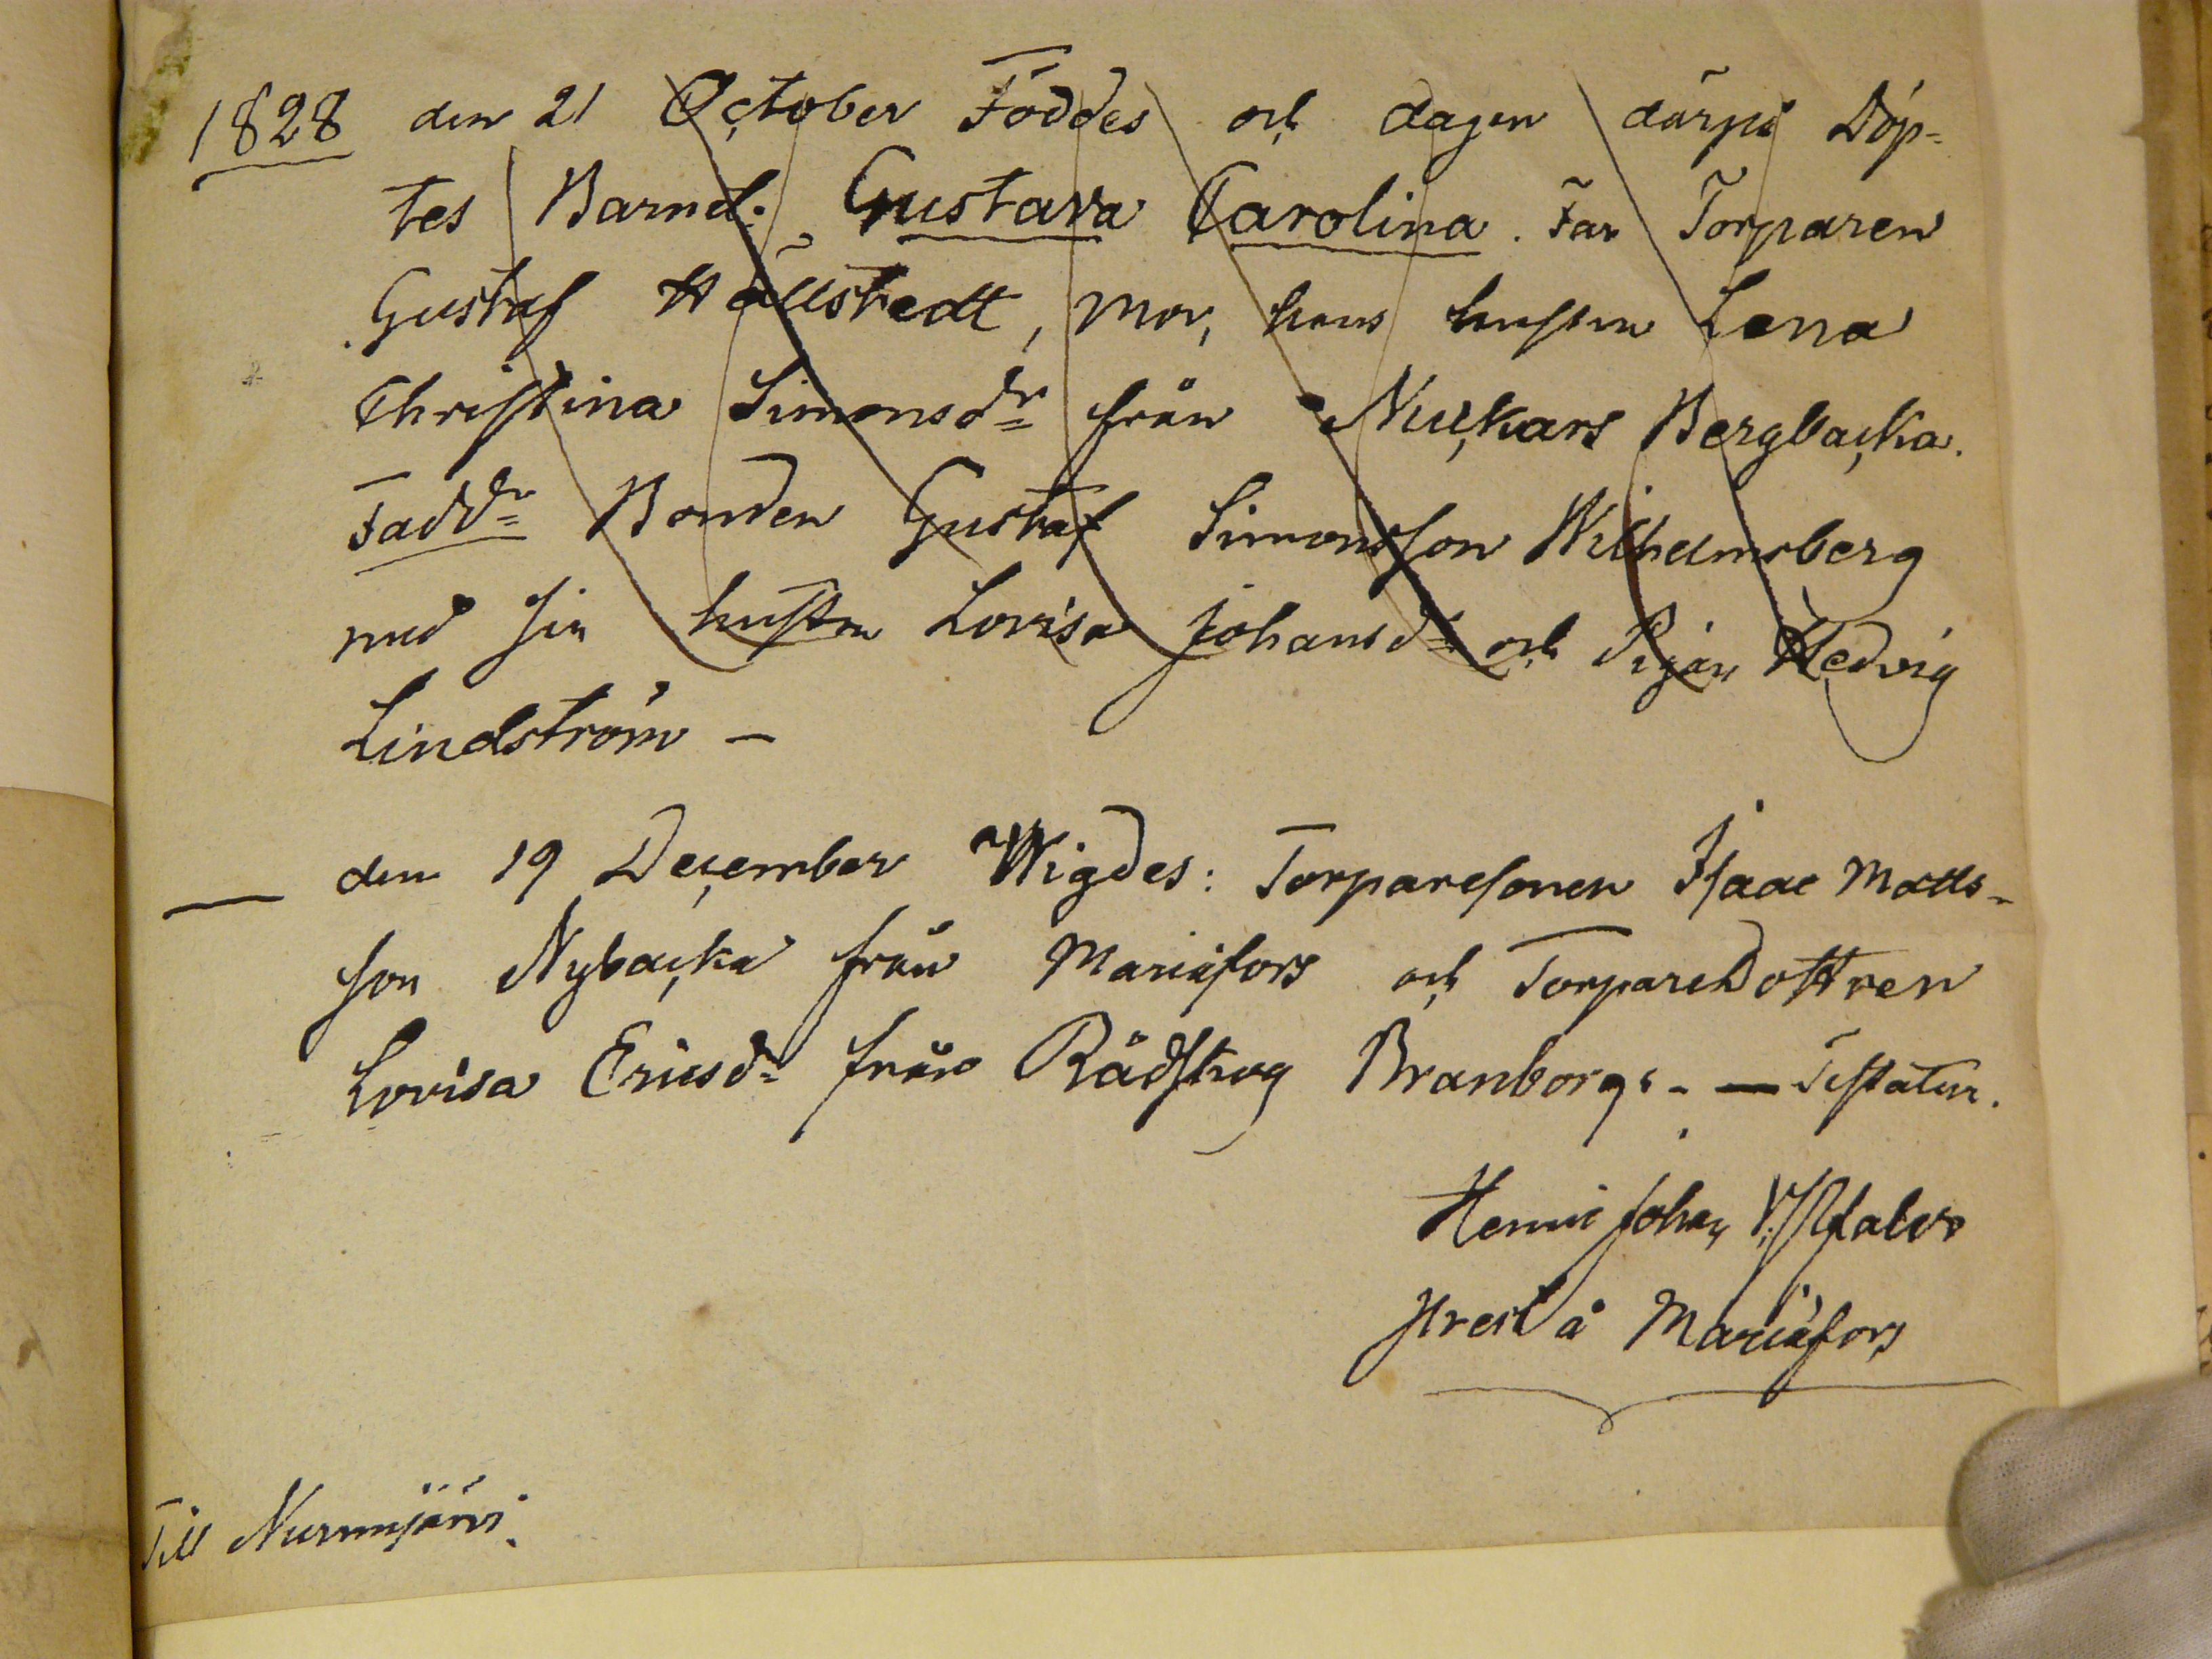 1828 den 21 October Föddes och dagen därpå Döp-
tes Barnet: Gustava Carolina. Far Torparen
Gustaf Hällstedt, Mor, hans hustru Lena
Christina Simonsdr från Nuckars Bergbacka.
Faddr Bonden Gustaf Simonsson Wilhelmsberg
med sin hustru Lovisa Johansdr och Pigan Hedvig
Lindström –
— den 19 December Wigdes: Torparesonen Isaac Matts-
son Nybacka från Mariæfors och TorpareDottren
Lovisa Ericsdr från Rådstug Branborgs - —
Henric Johan
Prest å Mariæfors
Till Nurmijärvi.